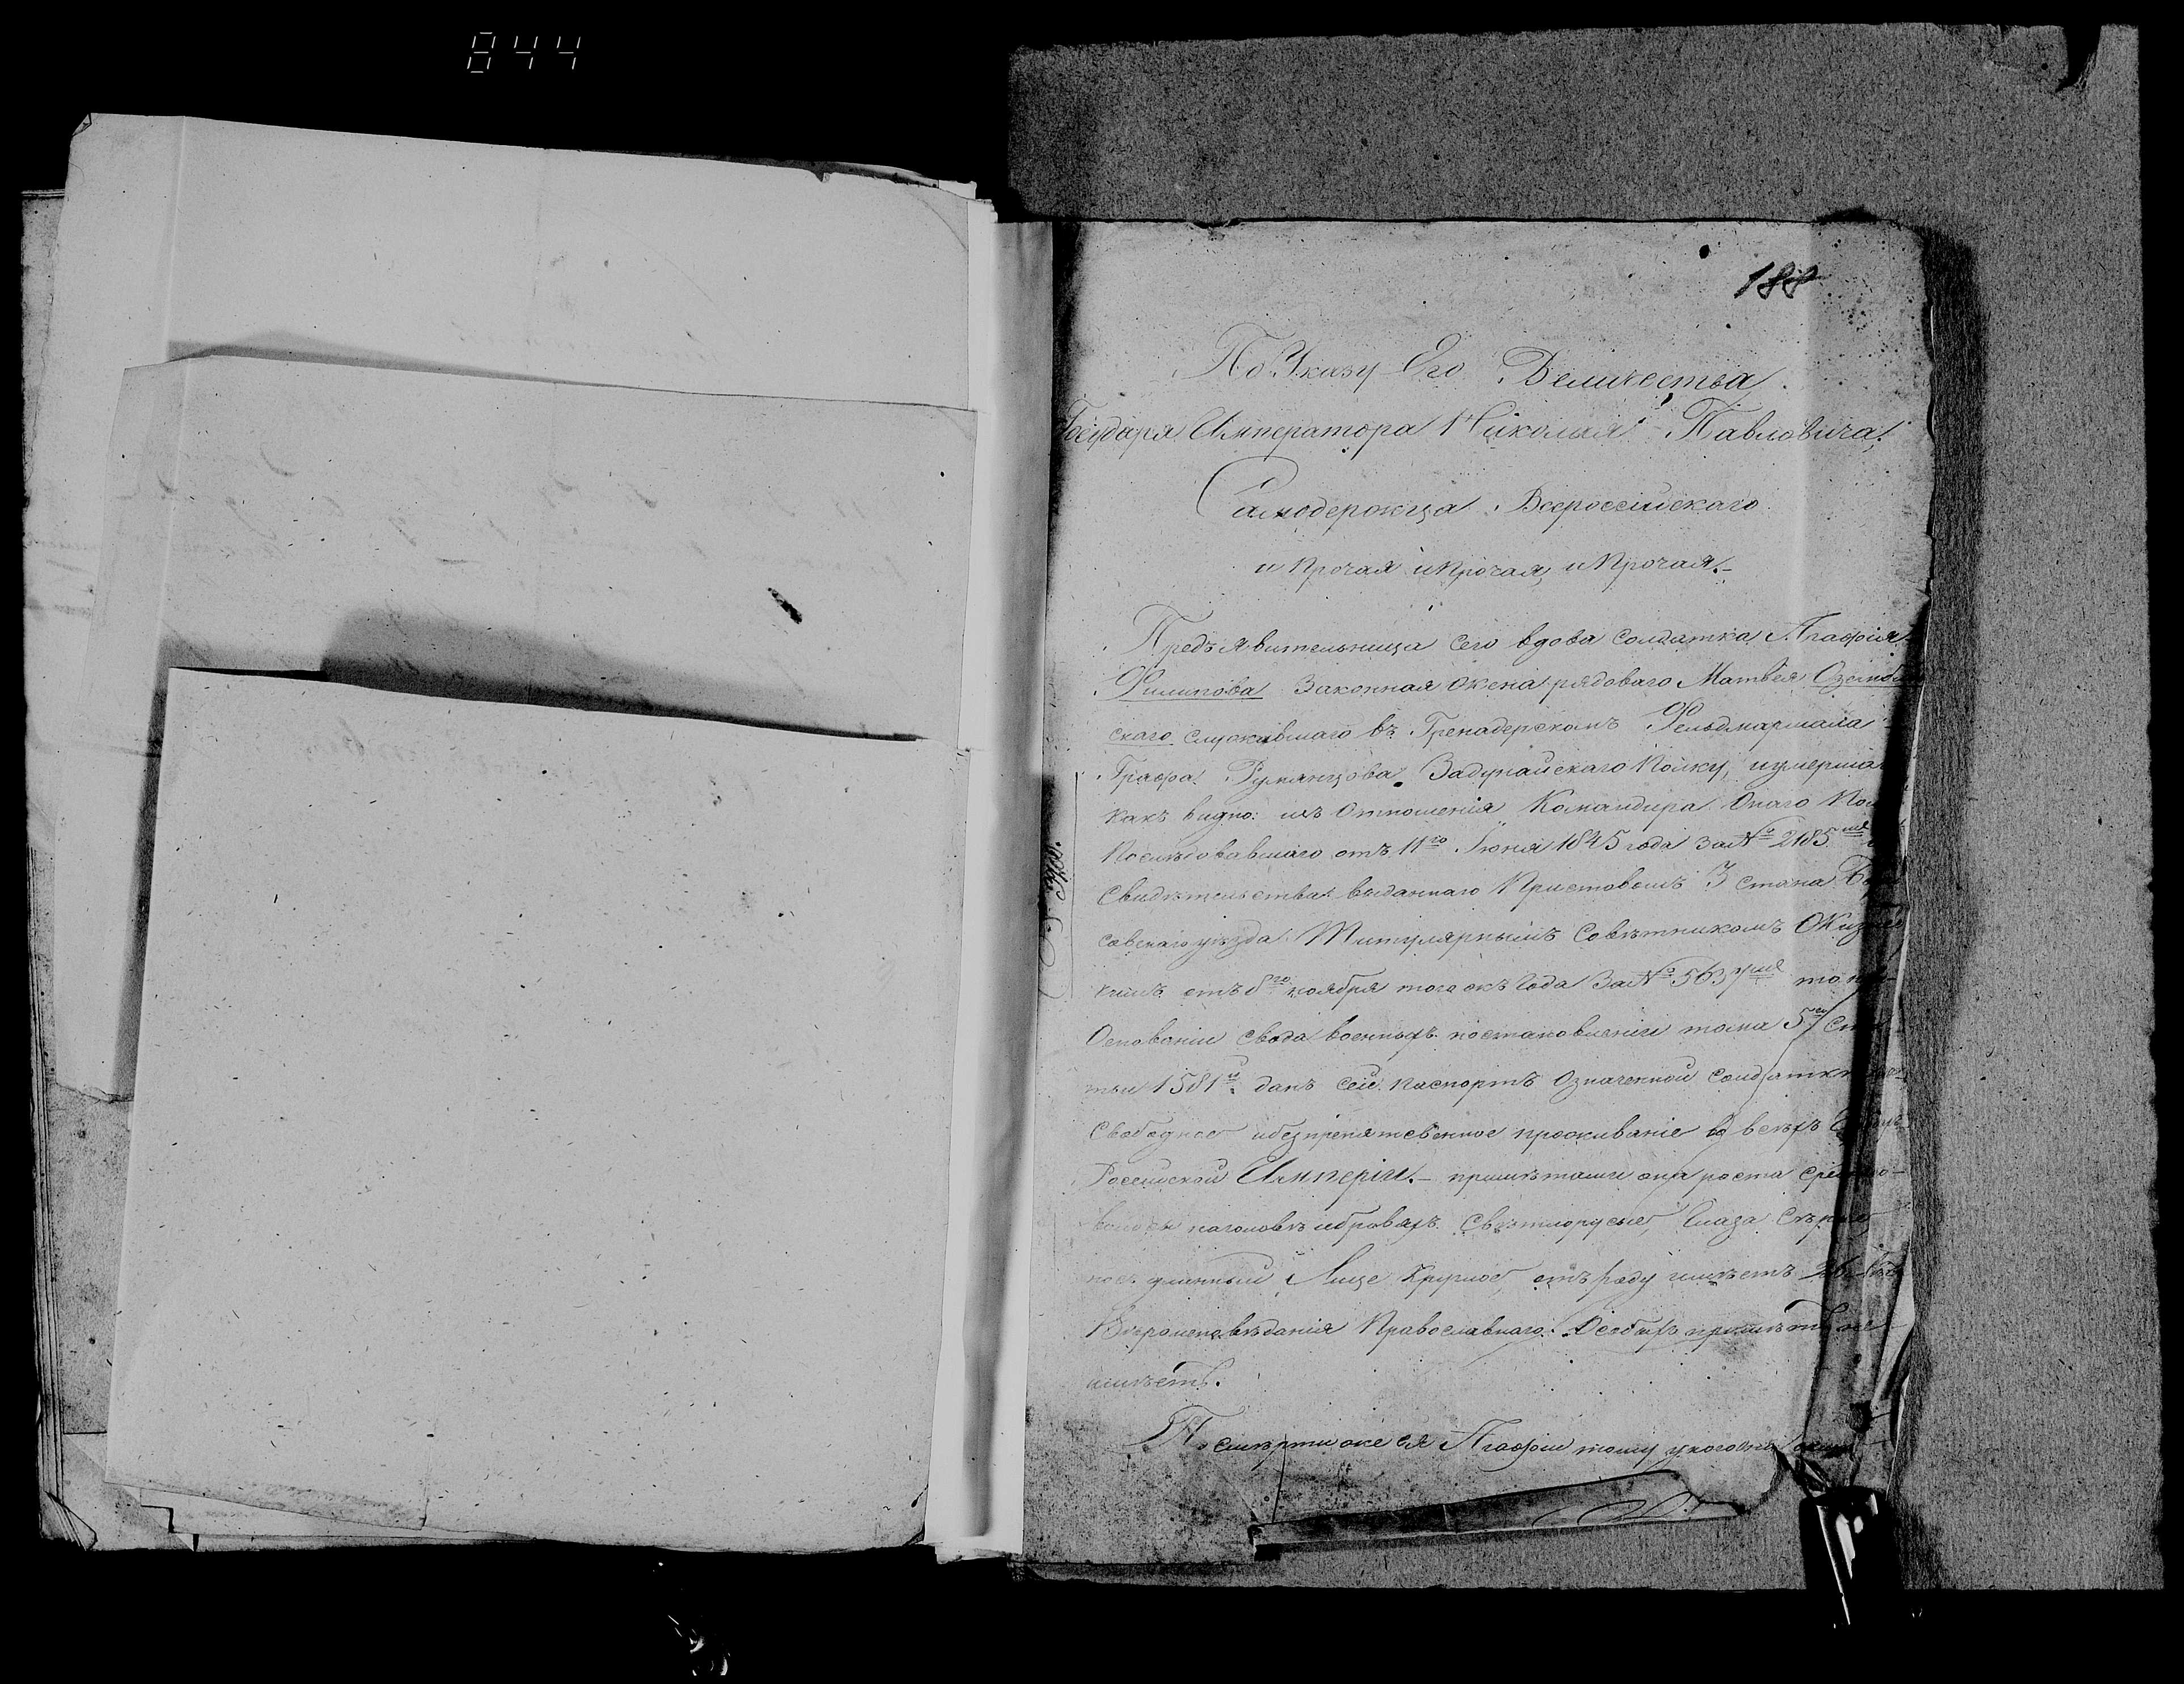 844
188
По Указу Его Величества
Государя Императора Николая Павловича,
Самодержца Всероссійскаго
и прочая и прочая, и прочая.-
Предъявительница сего вдова солдатка Агафія
Филипова Законная жена рядоваго Матвея
скаго служившаго въ Гренадерскомъ Фельдмаршала
Графа Румянцова Задунайскаго полку,
какъ видно: изъ Отношенія Командира Онаго
Последовавшаго отъ 11го Іюня 1845 года За № 2185
Свидѣтельства выданнаго Приставомъ 3 стана
совскаго уѣзда Титулярнымъ Совѣтникомъ
кимъ отъ 8го ноября того жъ года За № 5637
Основаніи свода военныхъ постановленіи тома 5
тьи 1581й данъ сей паспортъ Означенной солдатк
Свободное и безпрепятсвенное проживаніе въ всѣхъ
Россійской Имперіи.- примѣтами она роста
волосы наголовѣ ибровяхъ Свѣтлорусые, Глаза Сѣрые
носъ длинный, Лице Круглое, отъ роду имѣетъ
Вѣроисповѣданія Православнаго. Особыхъ примѣтъ не
имѣетъ.
По смѣрти же ея Агафіи тому укого она